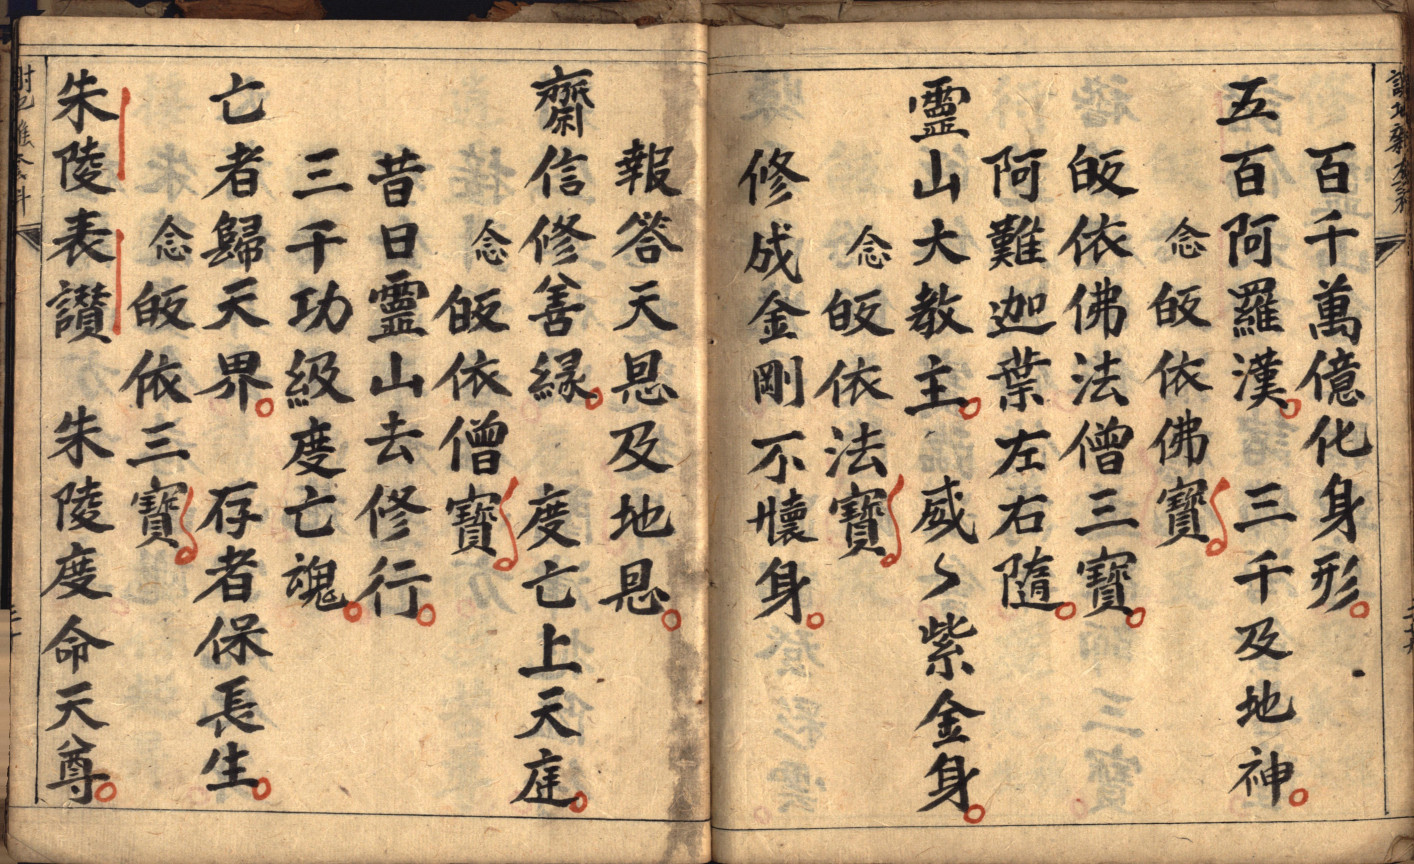 百千萬億化身形
五百阿羅漢 三千及地神
念 皈依佛寶
皈依佛法僧三寶
阿難迦葉左右隨
靈山大教主 威〻紫金身
念 皈依法寶
修成金剛不懷身
報答天恩及地恩
齋信修善緣 度亡上天庭
念 皈依僧寶
昔日靈山去修行
三千功級度亡魂
亡者歸天界 存者保長生
念 皈依三寶
朱陵表讃 朱陵度命天尊